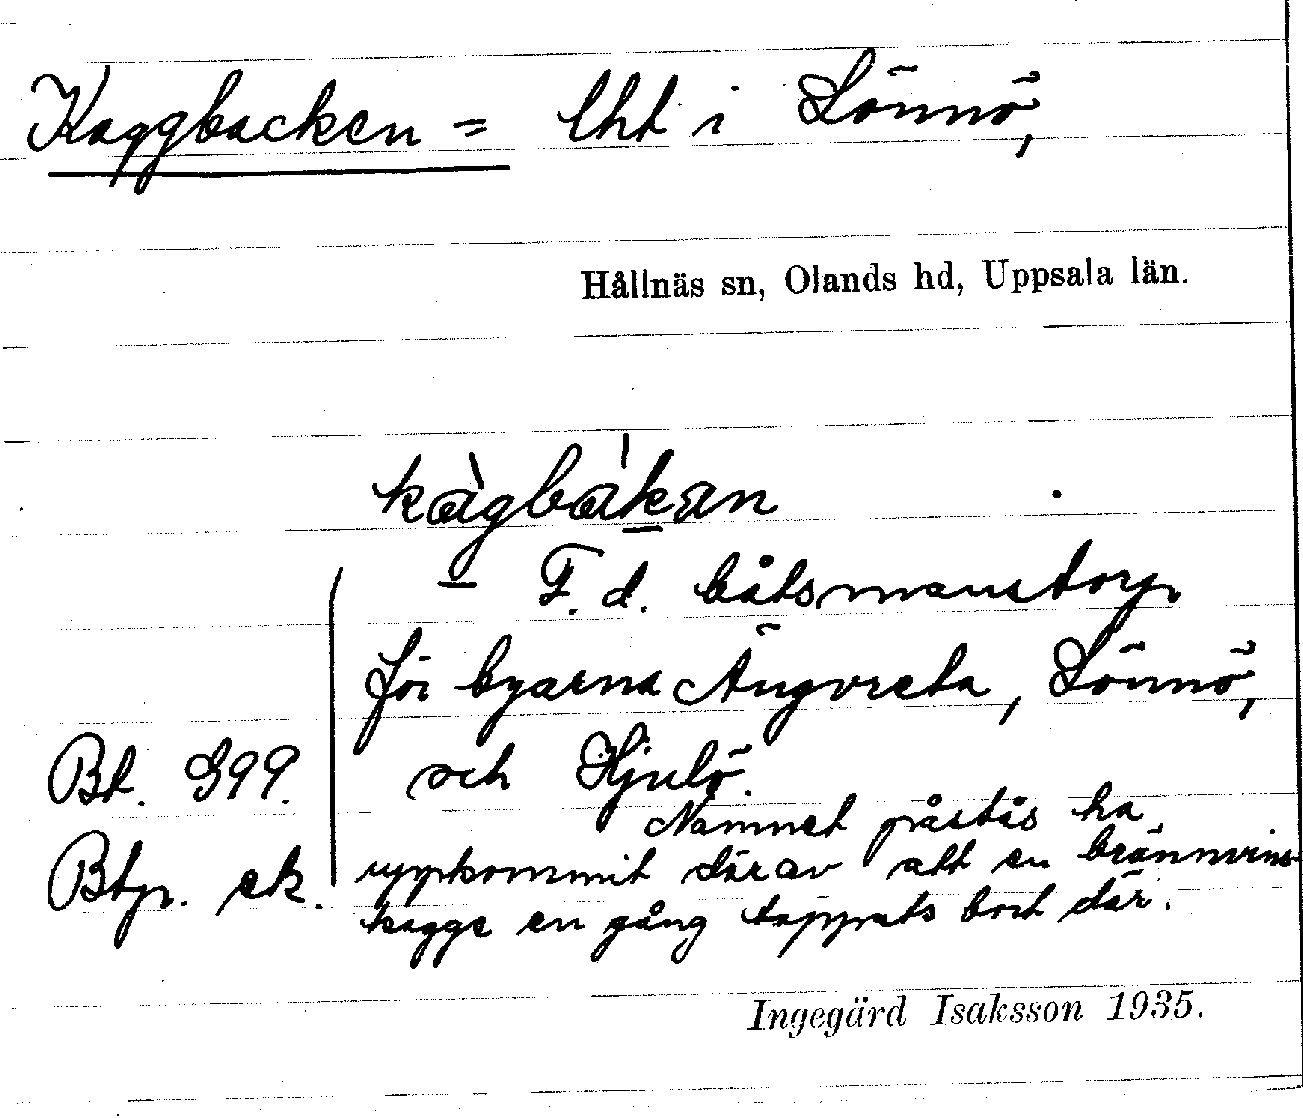 Kaggbacken = lht i Lönnö,
Hållnäs sn, Olands hd, Uppsala län.
kàgbàkan
– F. d. båtsmanstorp
för byarna Ängvreta, Lönnö,
Bt. 399. och Hjulö.
Namnet påstås ha
Btp. ek. uppkommit därav att en brännvins-
kagge en gång tappats bort där.
Ingegärd Isaksson 1935.